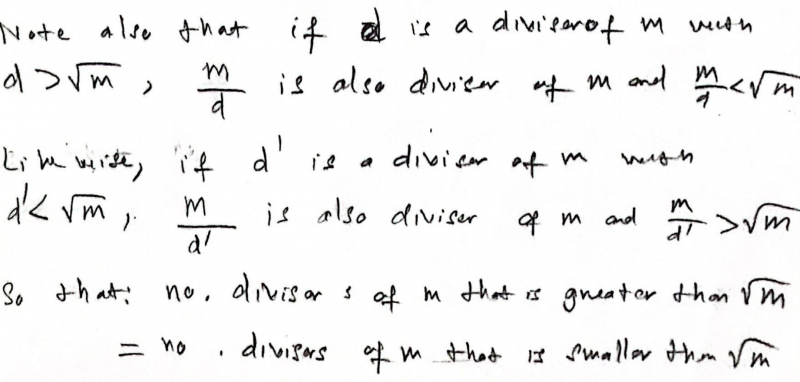 Note also that if d is a divisor of m with
d > √m, m/d is also divisor of m and m/d < √m
Likewise, if d' is a divisor of m with
d' < √m, m/d' is also divisor of m and m/d' > √m
So that: no. divisors of m that is greater than √m
= no. divisors of m that is smaller than √m